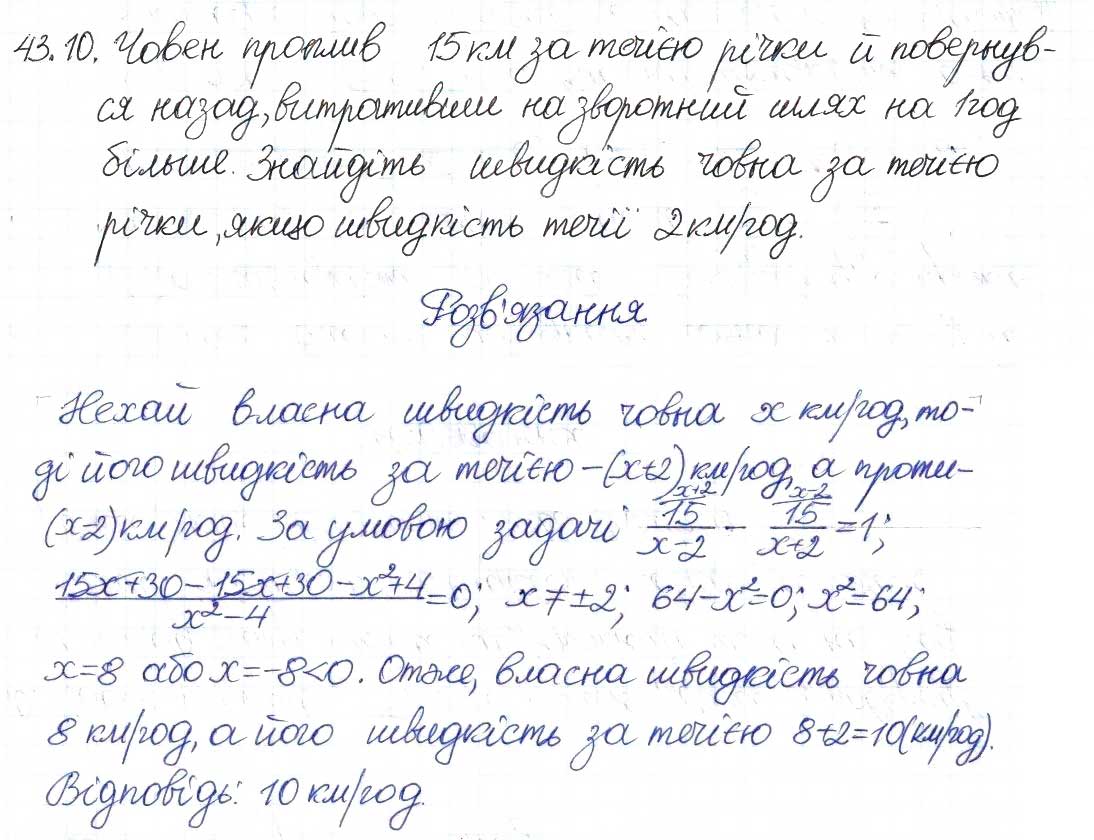 43.10. Човен проплив 15 км за течією річки й повернув-
ся назад, витративши на зворотний шлях на 1 год
більше. Знайдіть швидкість човна за течією
річки, якщо швидкість течії 2 км/год.
Розв'язання
Нехай власна швидкість човна x км/год, то-
ді його швидкість за течією – (x+2) км/год, а проти –
(x-2) км/год. За умовою задачі \frac{15}{x-2}^{x+2} - \frac{15}{x+2}^{x-2} = 1;
\frac{15x+30-15x+30-x^2+4}{x^2-4} = 0; x ≠ ±2; 64-x²=0; x²=64;
x=8 або x=-8<0. Отже, власна швидкість човна
8 км/год, а його швидкість за течією 8+2=10(км/год).
Відповідь: 10 км/год.